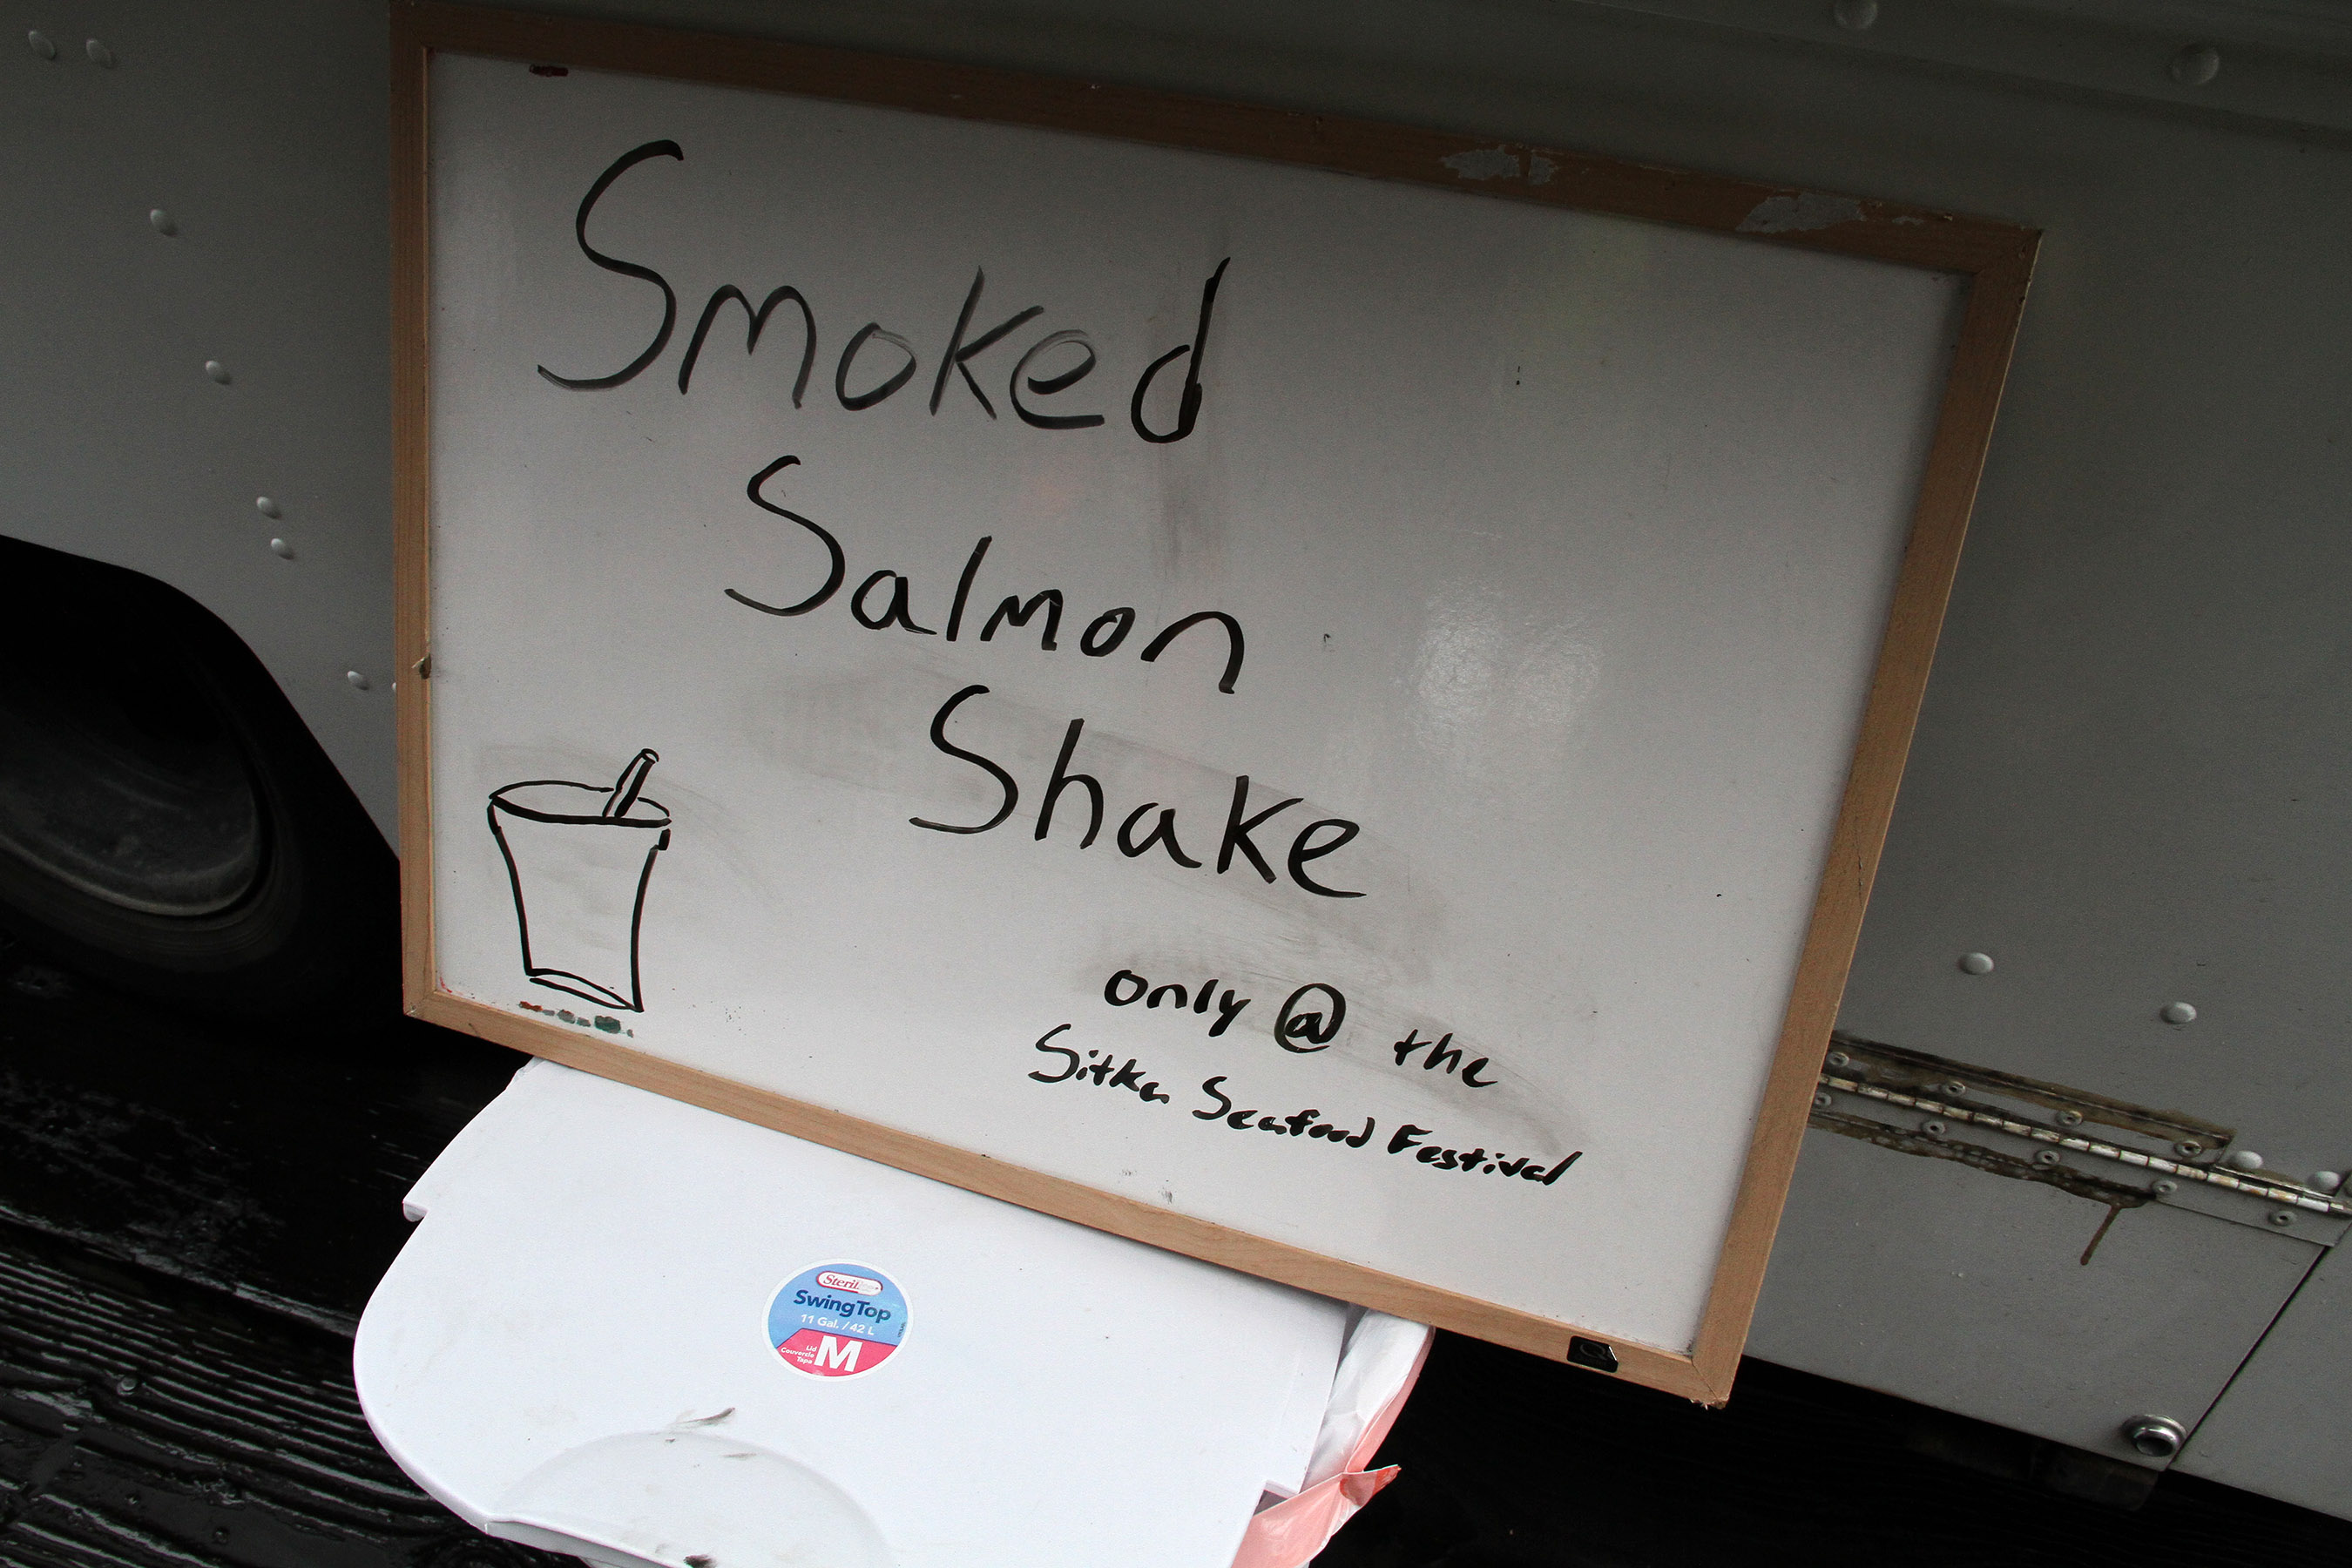 Smoked
Salmon
Shake
only @ the
Sitka Seafood Festival
SwingTop
11 Gal. / 42 L
Lid
Couvercle
Tapa
M